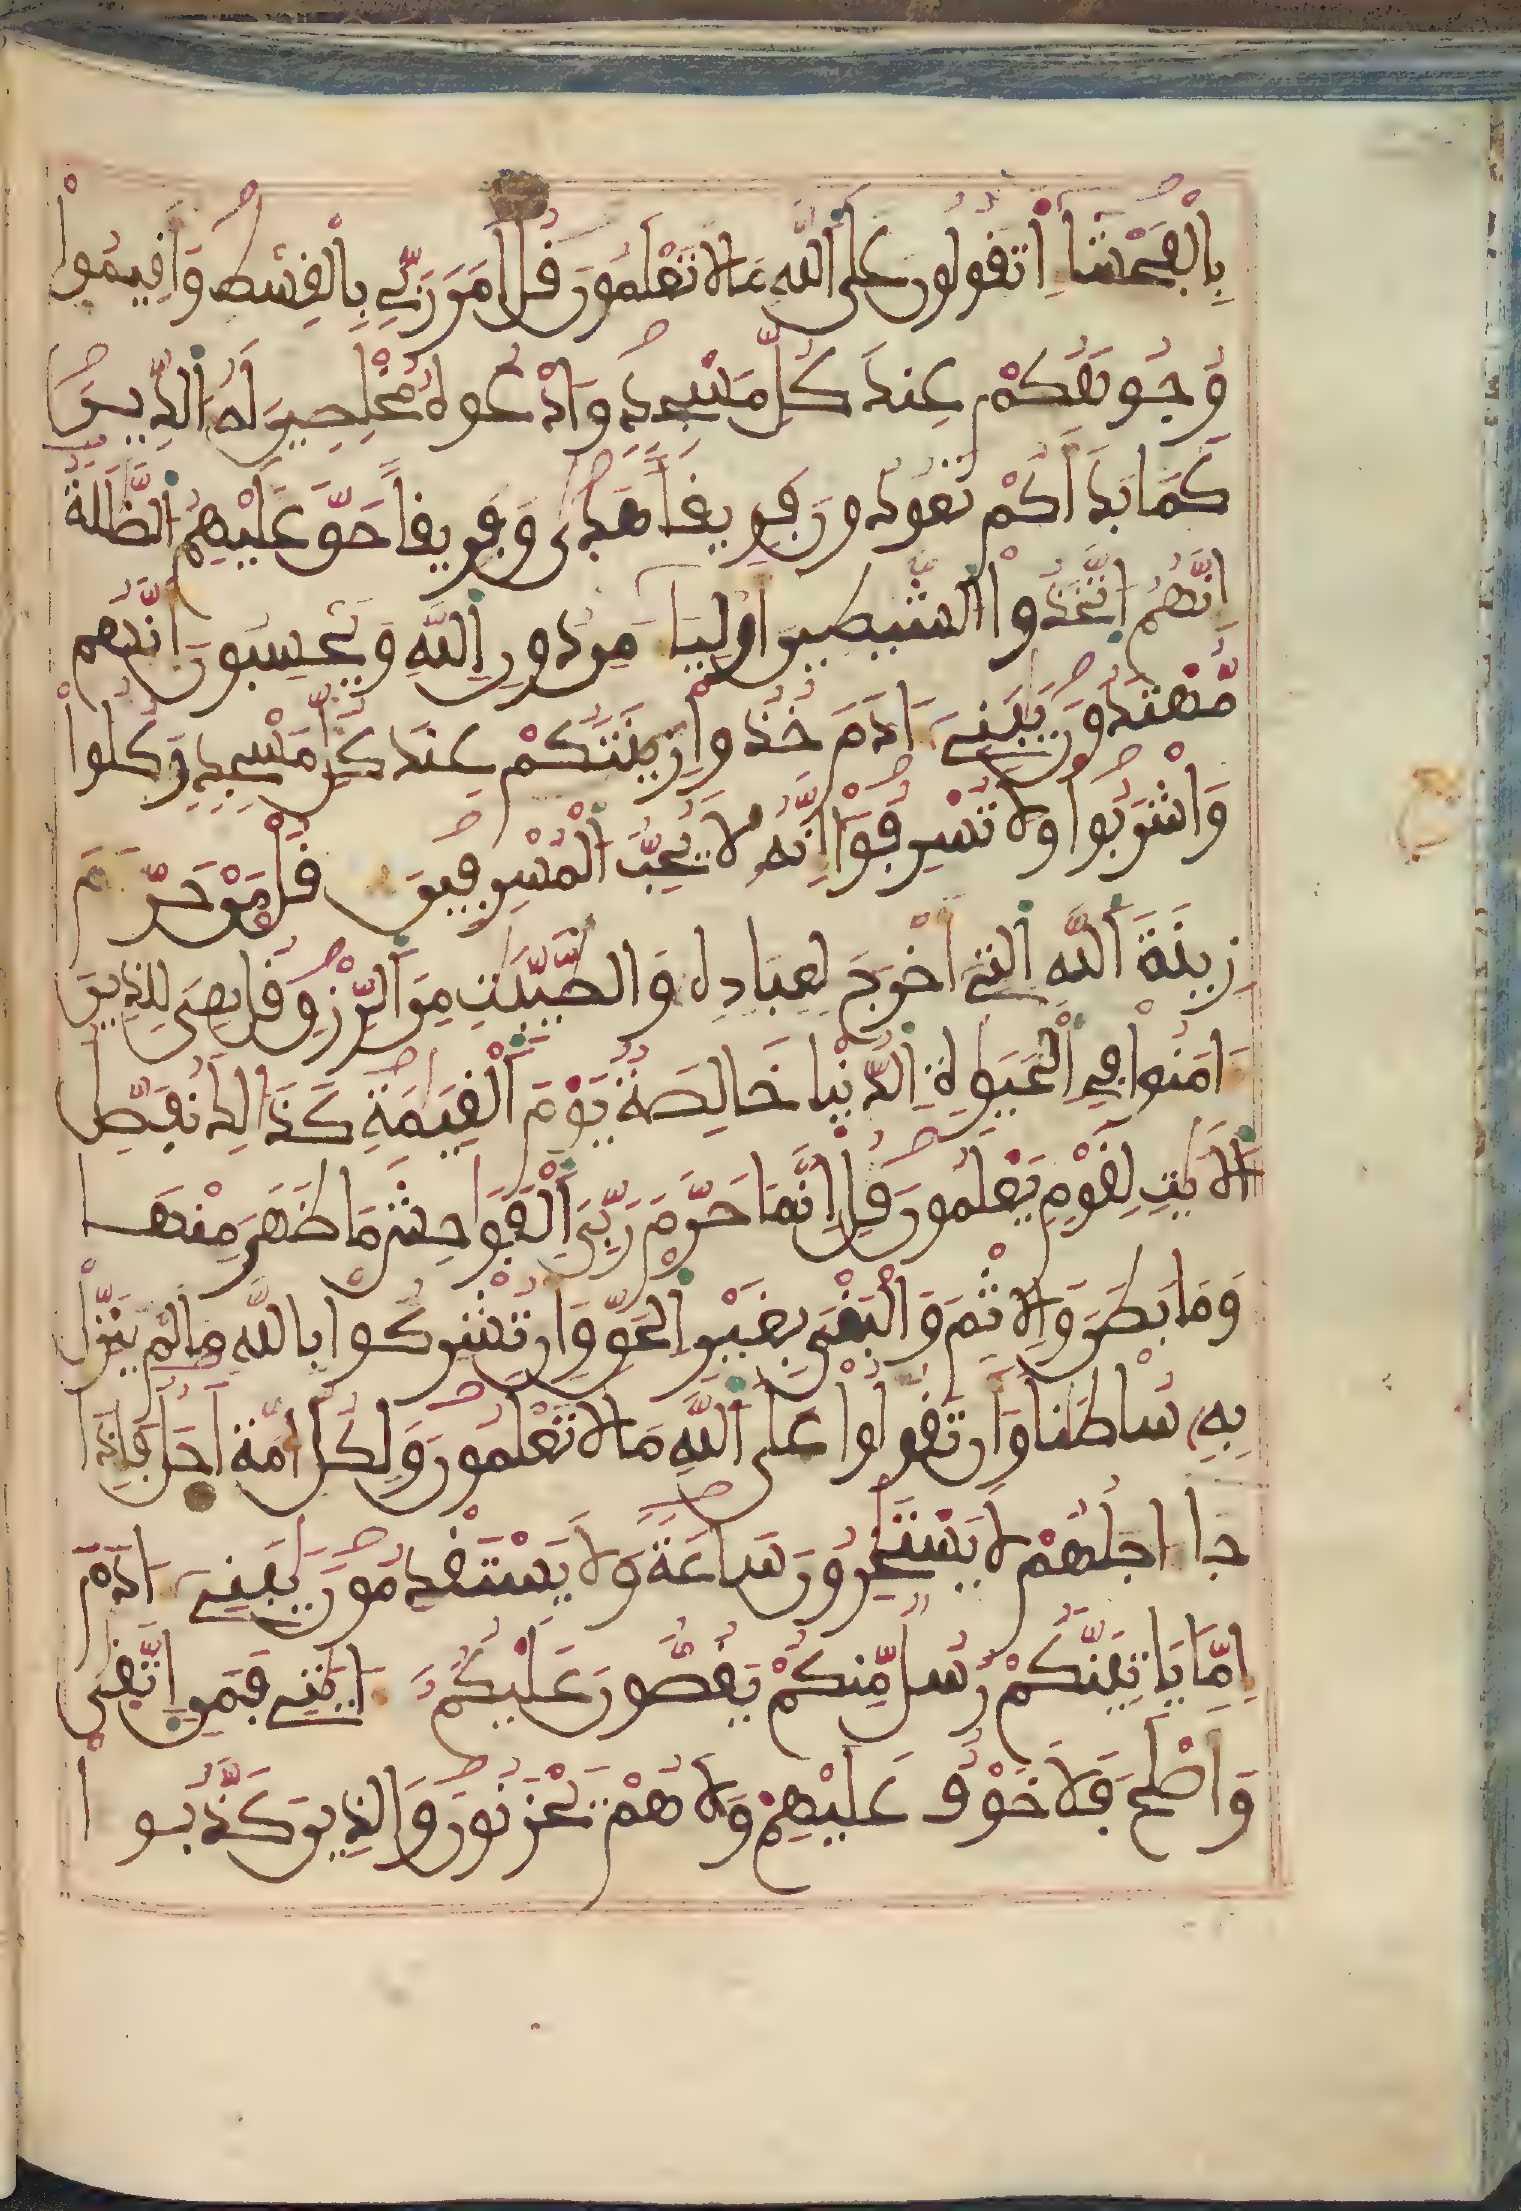 بِالْفَحْشَآءِ اَتَقُولُونَ عَلَى اَللَّهِ مَا لَا تَعْلَمُونَ قُلَ اَمَرَ رَبِّي بِالْقِسْطِ وَأَقِيمُواْ
وُجُوهَكُمْ عِندَ كُلِّ مَسْجِدٍ وَادْعُوهُ مُخْلِصِينَ لَهُ اُلدِّينَ
كَمَا بَدَأَكُمْ تَعُودُونَ فَرِيقاً هَدَىٰ وَفَرِيقاً حَقَّ عَلَيْهِمُ اُلضَّلَٰلَةُ
اِنَّهُمُ اُتَّخَذُواْ اُلشَّيَٰطِينَ أَوْلِيَآءَ مِن دُونِ اِللَّهِ وَيَحْسِبُونَ أَنَّهُم
مُّهْتَدُونَ يَٰبَنِےٓ ءَادَمَ خُذُواْ زِينَتَكُمْ عِندَ كُلِّ مَسْجِدٍ وَكُلُواْ
وَاشْرَبُواْ وَلَا تُسْرِفُوٓاْ إِنَّهُۥ لَا يُحِبُّ اُلْمُسْرِفِينَ قُلْ مَنْ حَرَّمَ
زِينَةَ اَللَّهِ اِلتِےٓ أَخْرَجَ لِعِبَادِهِ وَالطَّيِّبَٰتِ مِنَ اَلرِّزْقِ قُلْ هِىَ لِلذِينَ
ءَامَنُواْ فِے اِلْحَيَوٰةِ اِلدُّنْيَا خَالِصَةٌ يَوْمَ اَلْقِيَٰمَةِ كَذَٰلِكَ نُفَصِّلُ
اُلْأَيَٰتِ لِقَوْمٍ يَعْلَمُونَ قُلِ اِنَّمَا حَرَّمَ رَبِّيَ اَلْفَوَٰحِشَ مَا ظَهَرَ مِنْهَا
وَمَا بَطَنَ وَالِاثْمَ وَالْبَغْىَ بِغَيْرِ اِلْحَقِّ وَأَن تُشْرِكُواْ بِاللَّهِ مَا لَمْ يُنَزِّلْ
بِهِۦ سُلْطَٰناً وَأَن تَقُولُواْ عَلَى اَللَّهِ مَا لَا تَعْلَمُونَ وَلِكُلِّ أُمَّةٍ اَجَلٌ فَإِذَا
جَآءَ اجَلُهُمْ لَا يَسْتَٰخِرُونَ سَاعَةً وَلَا يَسْتَقْدِمُونَ يَٰبَنِےٓ ءَادَمَ
إِمَّا يَاتِيَنَّكُمْ رُسُلٌ مِّنكُمْ يَقُصُّونَ عَلَيْكُمُۥٓ ءَايَٰتِے فَمَنِ اِتَّقَىٰ
وَأَصْلَحَ فَلَا خَوْفٌ عَلَيْهِمْ وَلَا هُمْ يَحْزَنُونَ وَالذِينَ كَذَّبُواْ